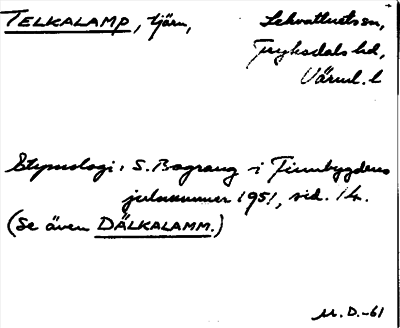 TELKALAMP, tjärn, Lekvattnets sn,
Fryksdals hd,
Värml. l
Etymologi: S. Bograng i Finnbygdens
julnummer 1951, sid. 14.
(Se även DÄLKALAMM.)
M.D.-61